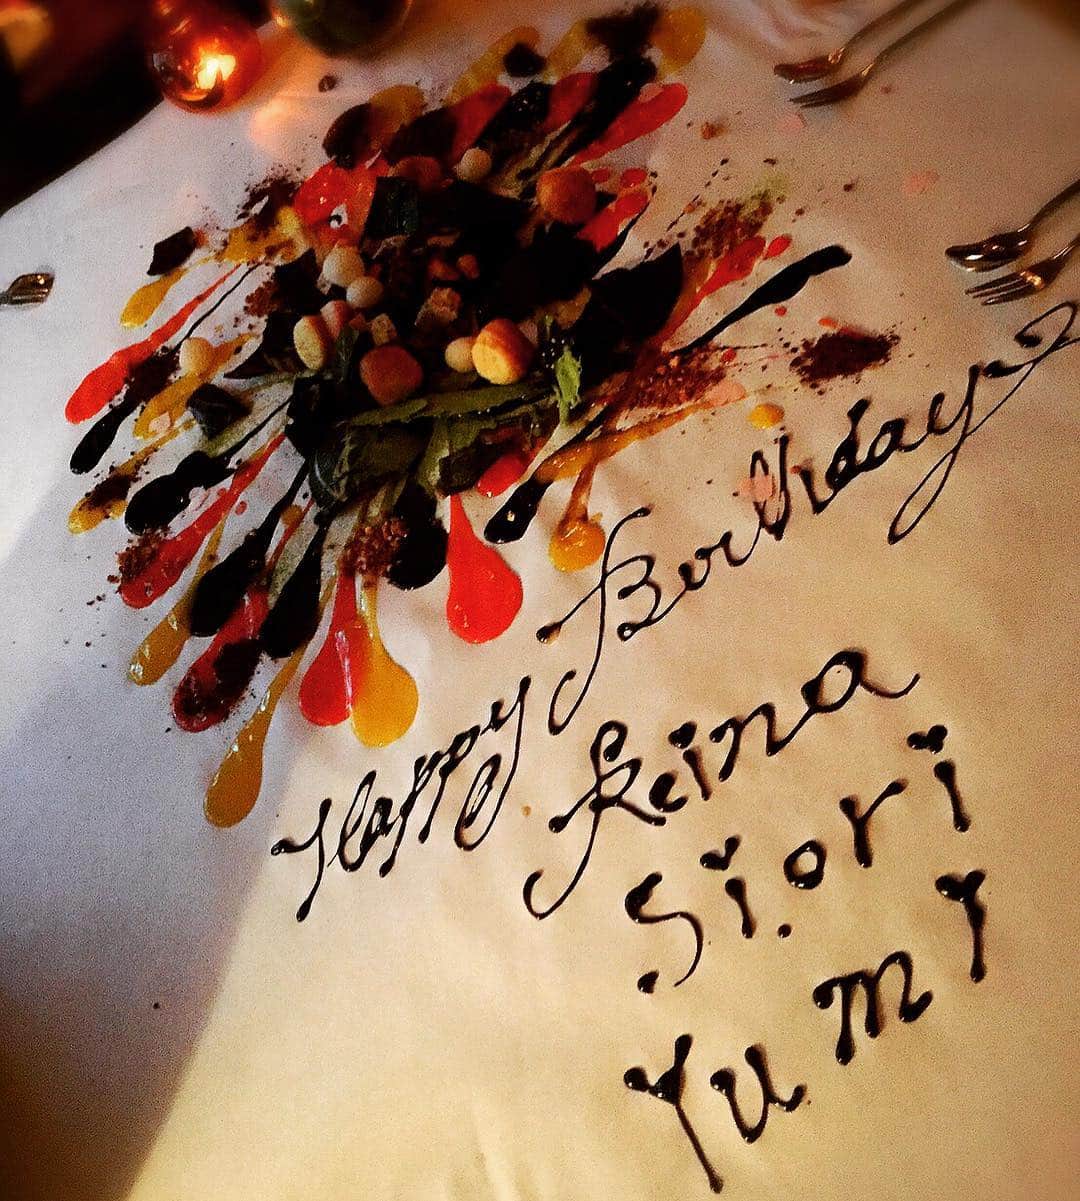 Happy Birthday
Reina
Siori
Yumi